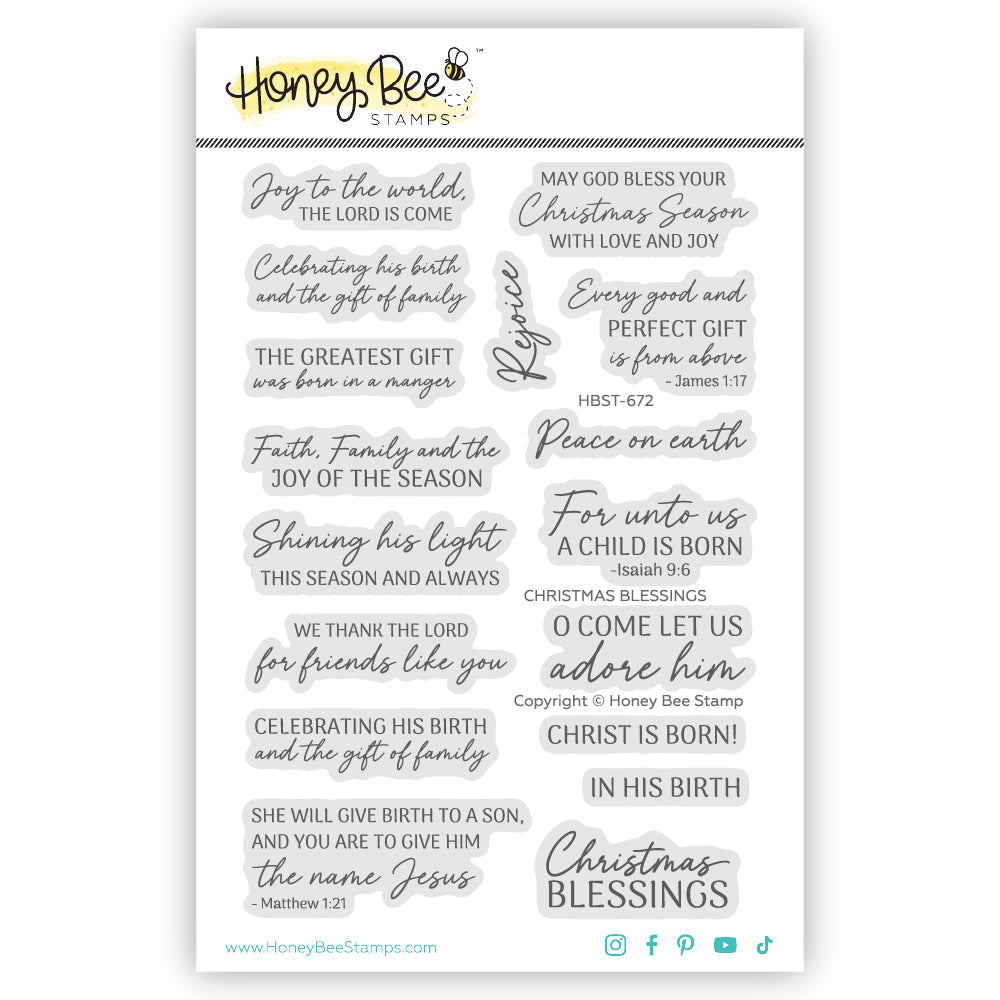 Honey Bee™
STAMPS
Joy to the world,
THE LORD IS COME
Celebrating his birth
and the gift of family
THE GREATEST GIFT
was born in a manger
Faith, Family and the
JOY OF THE SEASON
Shining his light
THIS SEASON AND ALWAYS
WE THANK THE LORD
for friends like you
CELEBRATING HIS BIRTH
and the gift of family
SHE WILL GIVE BIRTH TO A SON,
AND YOU ARE TO GIVE HIM
the name Jesus
- Matthew 1:21
MAY GOD BLESS YOUR
Christmas Season
WITH LOVE AND JOY
Rejoice
Every good and
PERFECT GIFT
is from above
- James 1:17
HBST-672
Peace on earth
For unto us
A CHILD IS BORN
-Isaiah 9:6
CHRISTMAS BLESSINGS
O COME LET US
adore him
Copyright © Honey Bee Stamp
CHRIST IS BORN!
IN HIS BIRTH
Christmas
BLESSINGS
www.HoneyBeeStamps.com